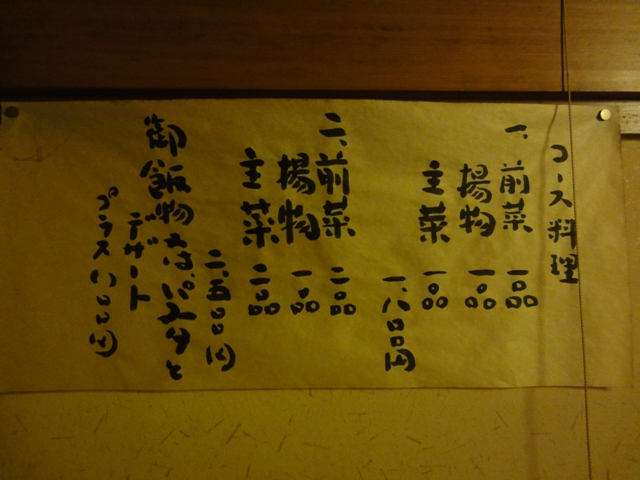 コース料理
一、前菜 一品
揚物 一品
主菜 一品
一、八〇〇円
二、前菜 二品
揚物 一品
主菜 二品
二、五〇〇円
御飯物又はパスタと
デザート
プラス八〇〇円